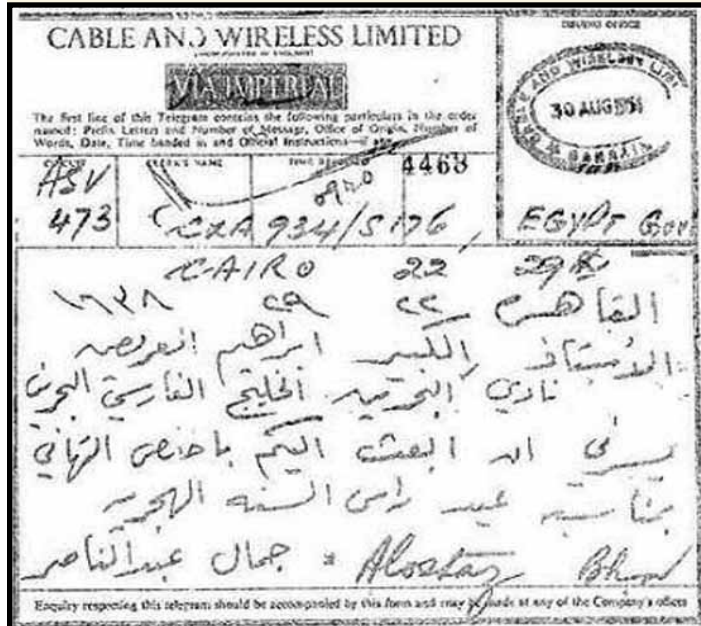 CABLE AND WIRELESS LIMITED
(INCORPORATED IN ENGLAND)
VIA IMPERIAL
The first line of this Telegram contains the following particulars in the order
named: Prefix Letters and Number of Message, Office of Origin, Number of
Words, Date, Time handed in and Official Instructions—if any.
ISSUING OFFICE
CABLE AND WIRELESS LTD.
30 AUG
BAHRAIN
CLERK'S NAME
TIME RECEIVED
4468
ASV
0920
473
CXA 934/S176, EGYPT Govt
CAIRO 22 29
القاهرة ٢٢ ٢٩ ١٦٣٨
الأستاذ الكبير ابراهيم العريض
نادي البحرين الخليج الفارسي البحرين
يسرني ان ابعث اليكم باخلص التهاني
بمناسبة عيد راس السنه الهجريه
جمال عبدالناصر * Alostaz Bhn
Enquiry respecting this telegram should be accompanied by this form and may be made at any of the Company's offices